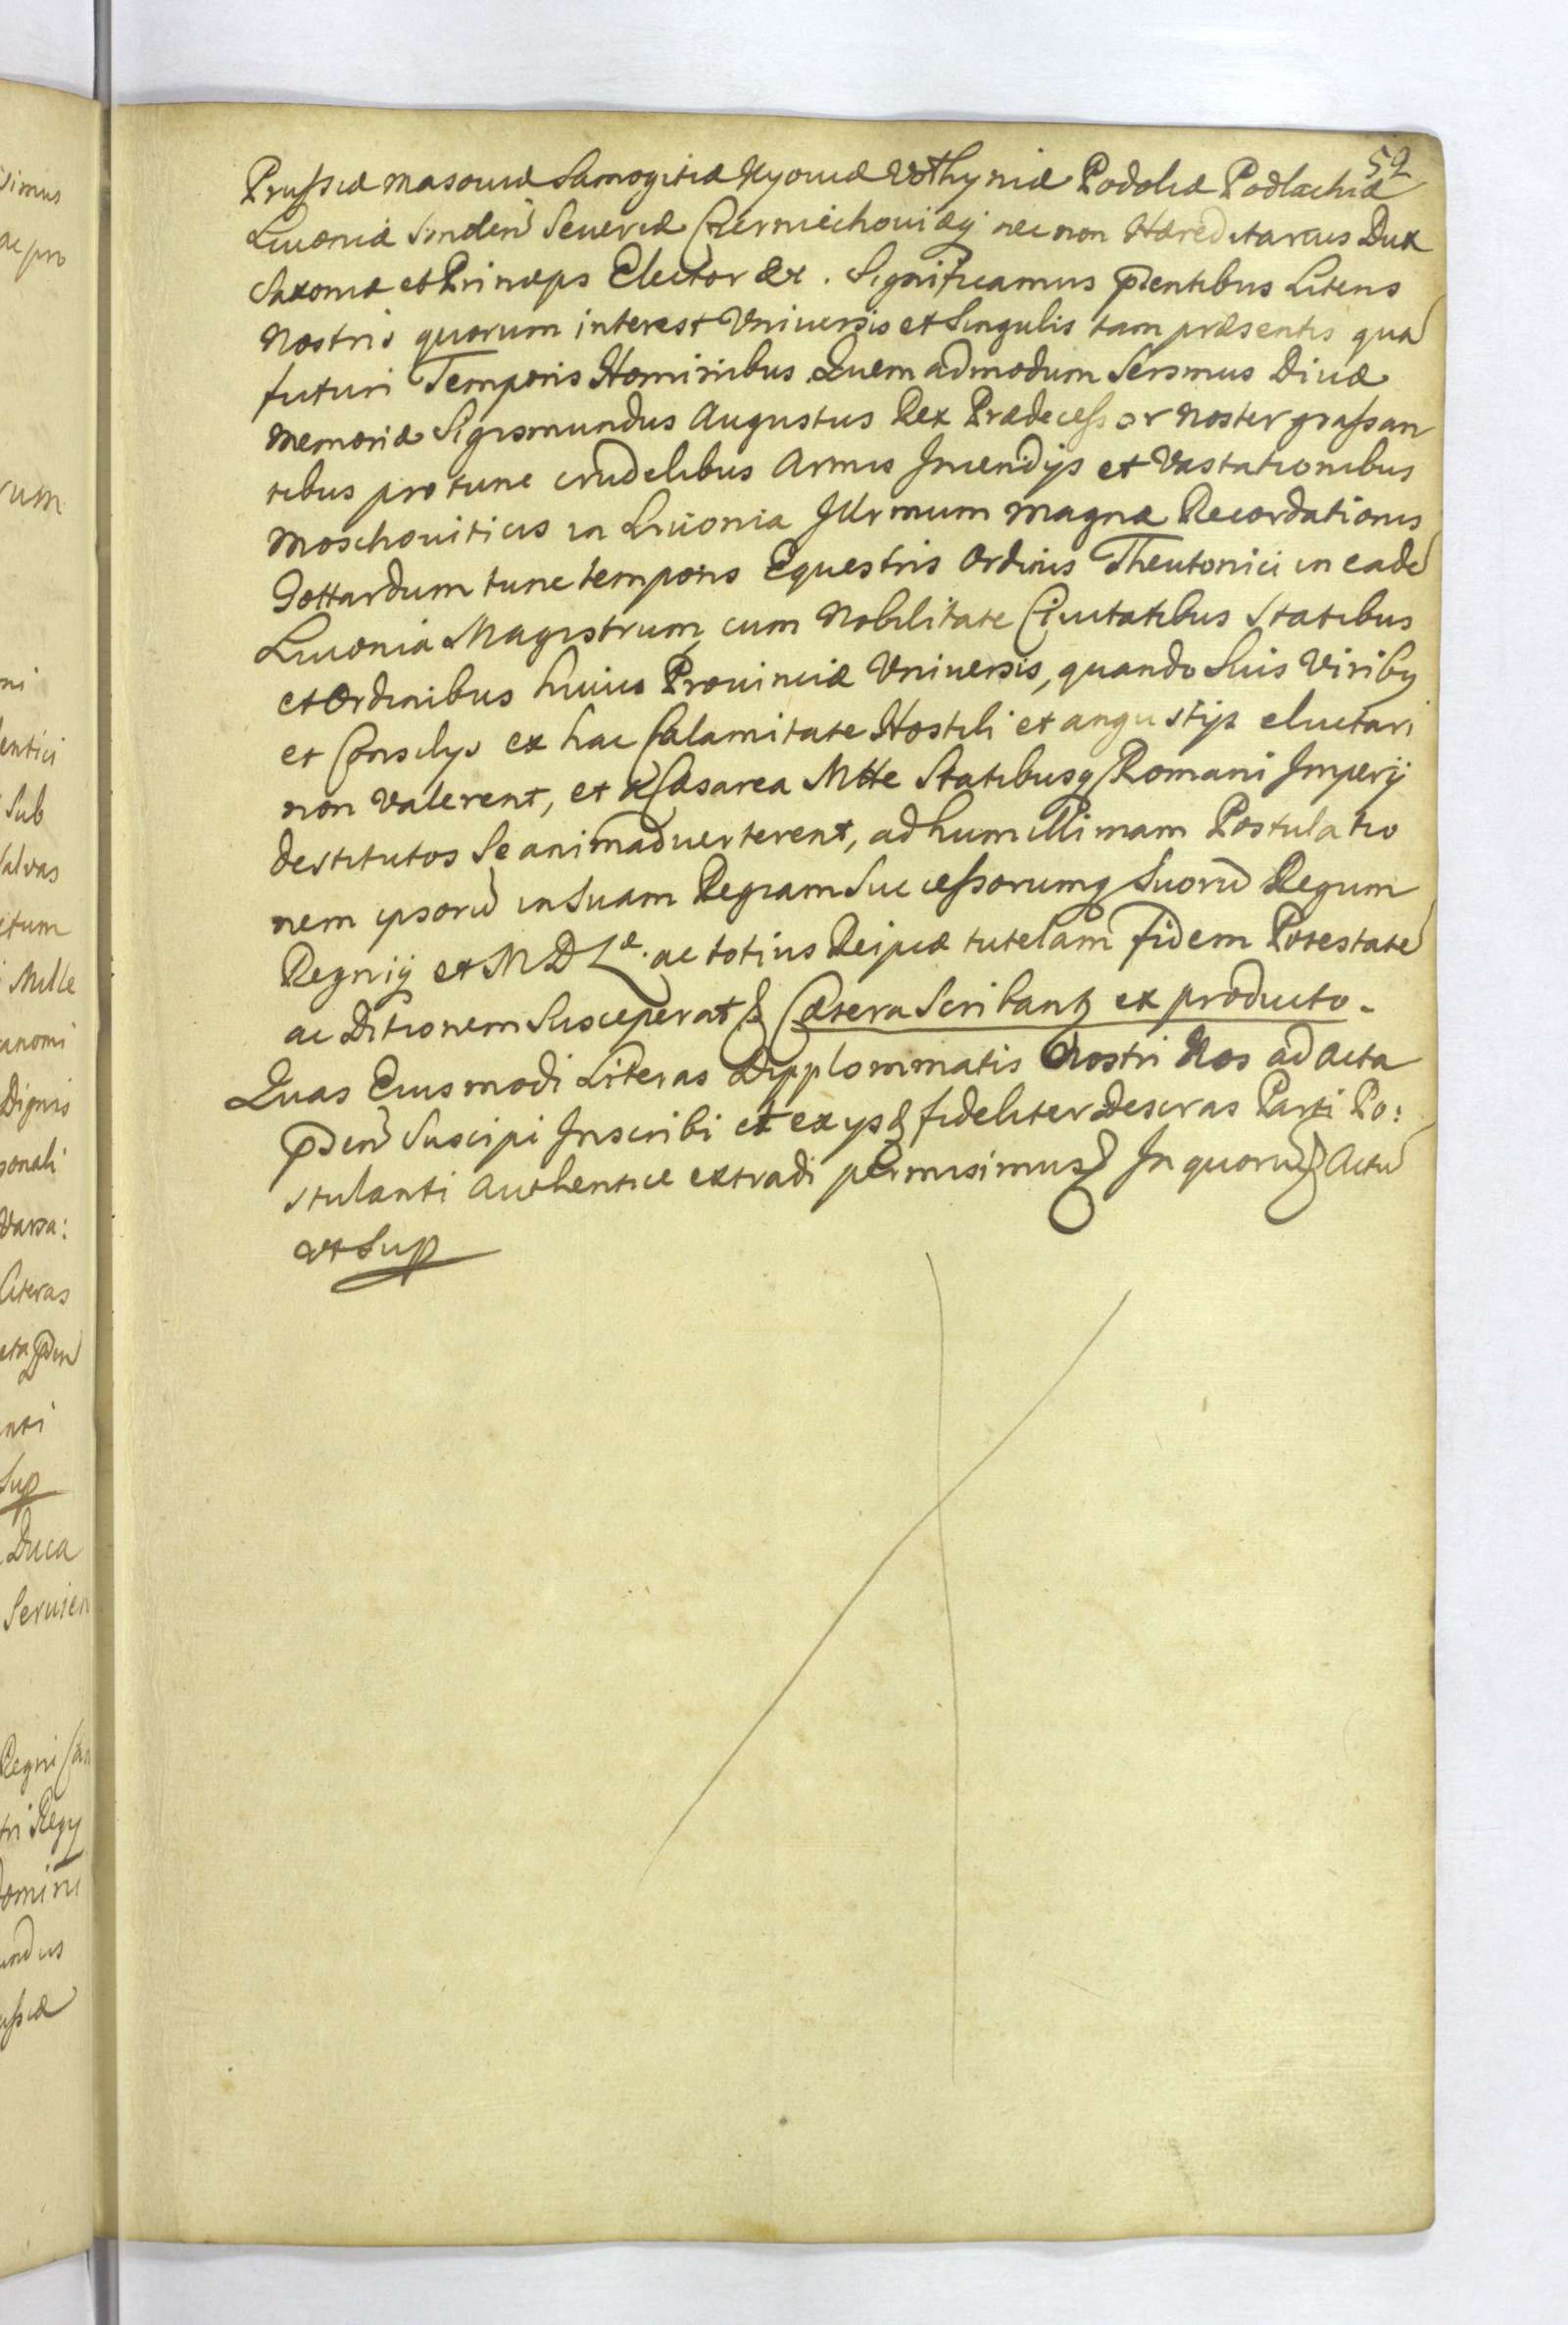 52
Prussiæ Masouiæ Samogitiæ Kyouiæ Volhyniæ Podoliæ Podlachiæ
Liuoniæ Smolen Seueriæ Czerniechouiæq nec non Hæreditarius Dux
Saxoniæ et Princeps Elector &c. Significamus pntibus Literis
Nostris quorum interest Vniuersis et Singulis tam præsentis qua
futuri Temporis Hominibus Quemadmodum Sersmus Diuæ
Memoriæ Sigismundus Augustus Rex Prædecessor Noster grassan
tibus pro tunc crudelibus Armis Incendijs et Vastationibus
Moschouiticis in Liuonia Illrmum Magnæ Recordationis
Gottardum tunc temporis Equestris Ordinis Theutonici in eade
Liuonia Magistrum, cum Nobilitate Ciuitatibus Statibus
et Ordinibus huius Prouinciæ Vniuersis, quando Suis Viribq
et Consilijs ex hac Calamitate Hostili et angustijs eluctari
non Valerent, et a Cæsarea Mtte Statibusq Romani Imperij
destitutos Se animaduerterent, ad humillimam Postulatio
nem ipsoru in Suam Regiam Successorumq Suoru Regum
Regnij et M D Læ. ac totius Reipcæ tutelam fidem Potestate
ac Ditionem Susceperat & Cætera Scribantq ex producto.
Quas Eiusmodi Literas Dipplommatis Nostri Nos ad Acta
pden Suscipi Inscribi et ex ijs fideliter Descras Parti Po:
stulanti Authentice extradi permisimus In quoru Actu
vt Sup